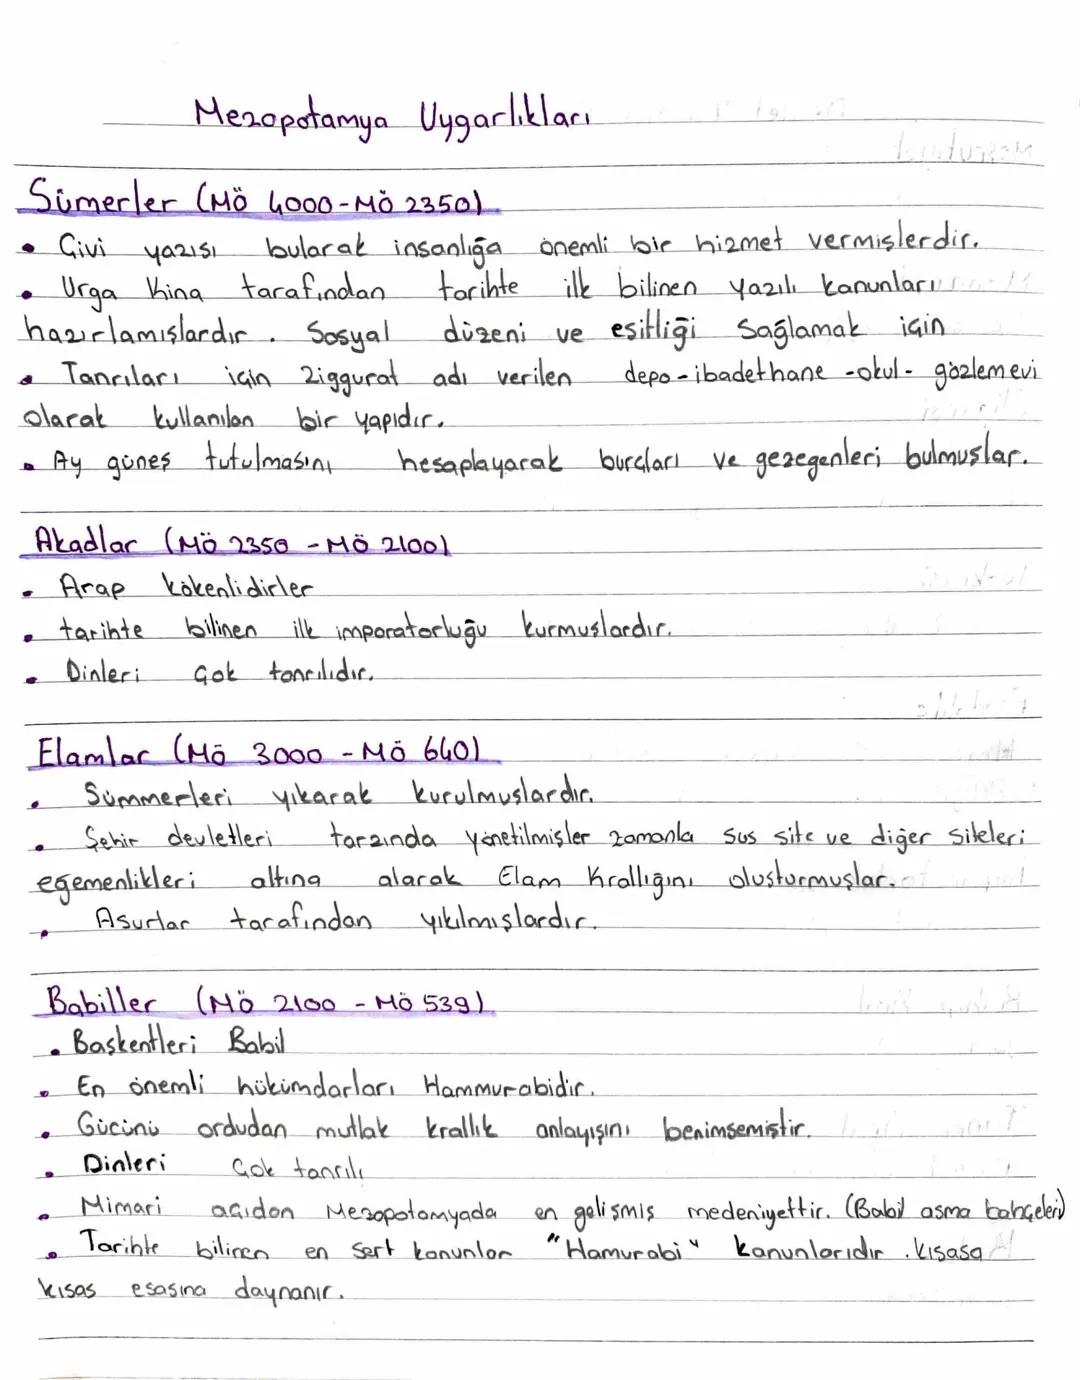 Mezopotamya Uygarlıkları
Sümerler (MÖ 4000-MÖ 2350)
• Çivi yazısı bularak insanlığa önemli bir hizmet vermişlerdir.
• Urga Kina tarafından tarihte ilk bilinen yazılı kanunları
hazırlamışlardır. Sosyal düzeni ve eşitliği sağlamak için
• Tanrıları için Ziggurat adı verilen depo-ibadethane-okul-gözlemevi
olarak kullanılan bir yapıdır.
• Ay güneş tutulmasını hesaplayarak burçları ve gezegenleri bulmuşlar.
Akadlar (MÖ 2350 - MÖ 2100)
• Arap kökenlidirler
• tarihte bilinen ilk imparatorluğu kurmuşlardır.
• Dinleri Çok tanrılıdır.
Elamlar (MÖ 3000 - MÖ 640)
• Sümmerleri yıkarak kurulmuşlardır.
• Şehir devletleri tarzında yönetilmişler zamanla Sus site ve diğer siteleri
egemenlikleri altına alarak Elam Krallığını oluşturmuşlar.
• Asurlar tarafından yıkılmışlardır.
Babiller (MÖ 2100 - MÖ 539)
• Başkentleri Babil
• En önemli hükümdarları Hammurabidir.
• Gücünü ordudan mutlak krallık anlayışını benimsemiştir.
• Dinleri Çok tanrılı
• Mimari açıdan Mezopotamyada en gelişmiş medeniyettir. (Babil asma bahçeleri)
• Tarihte bilinen en sert kanunlar "Hamurabi" kanunlarıdır. Kısasa
kısas esasına daynanır.